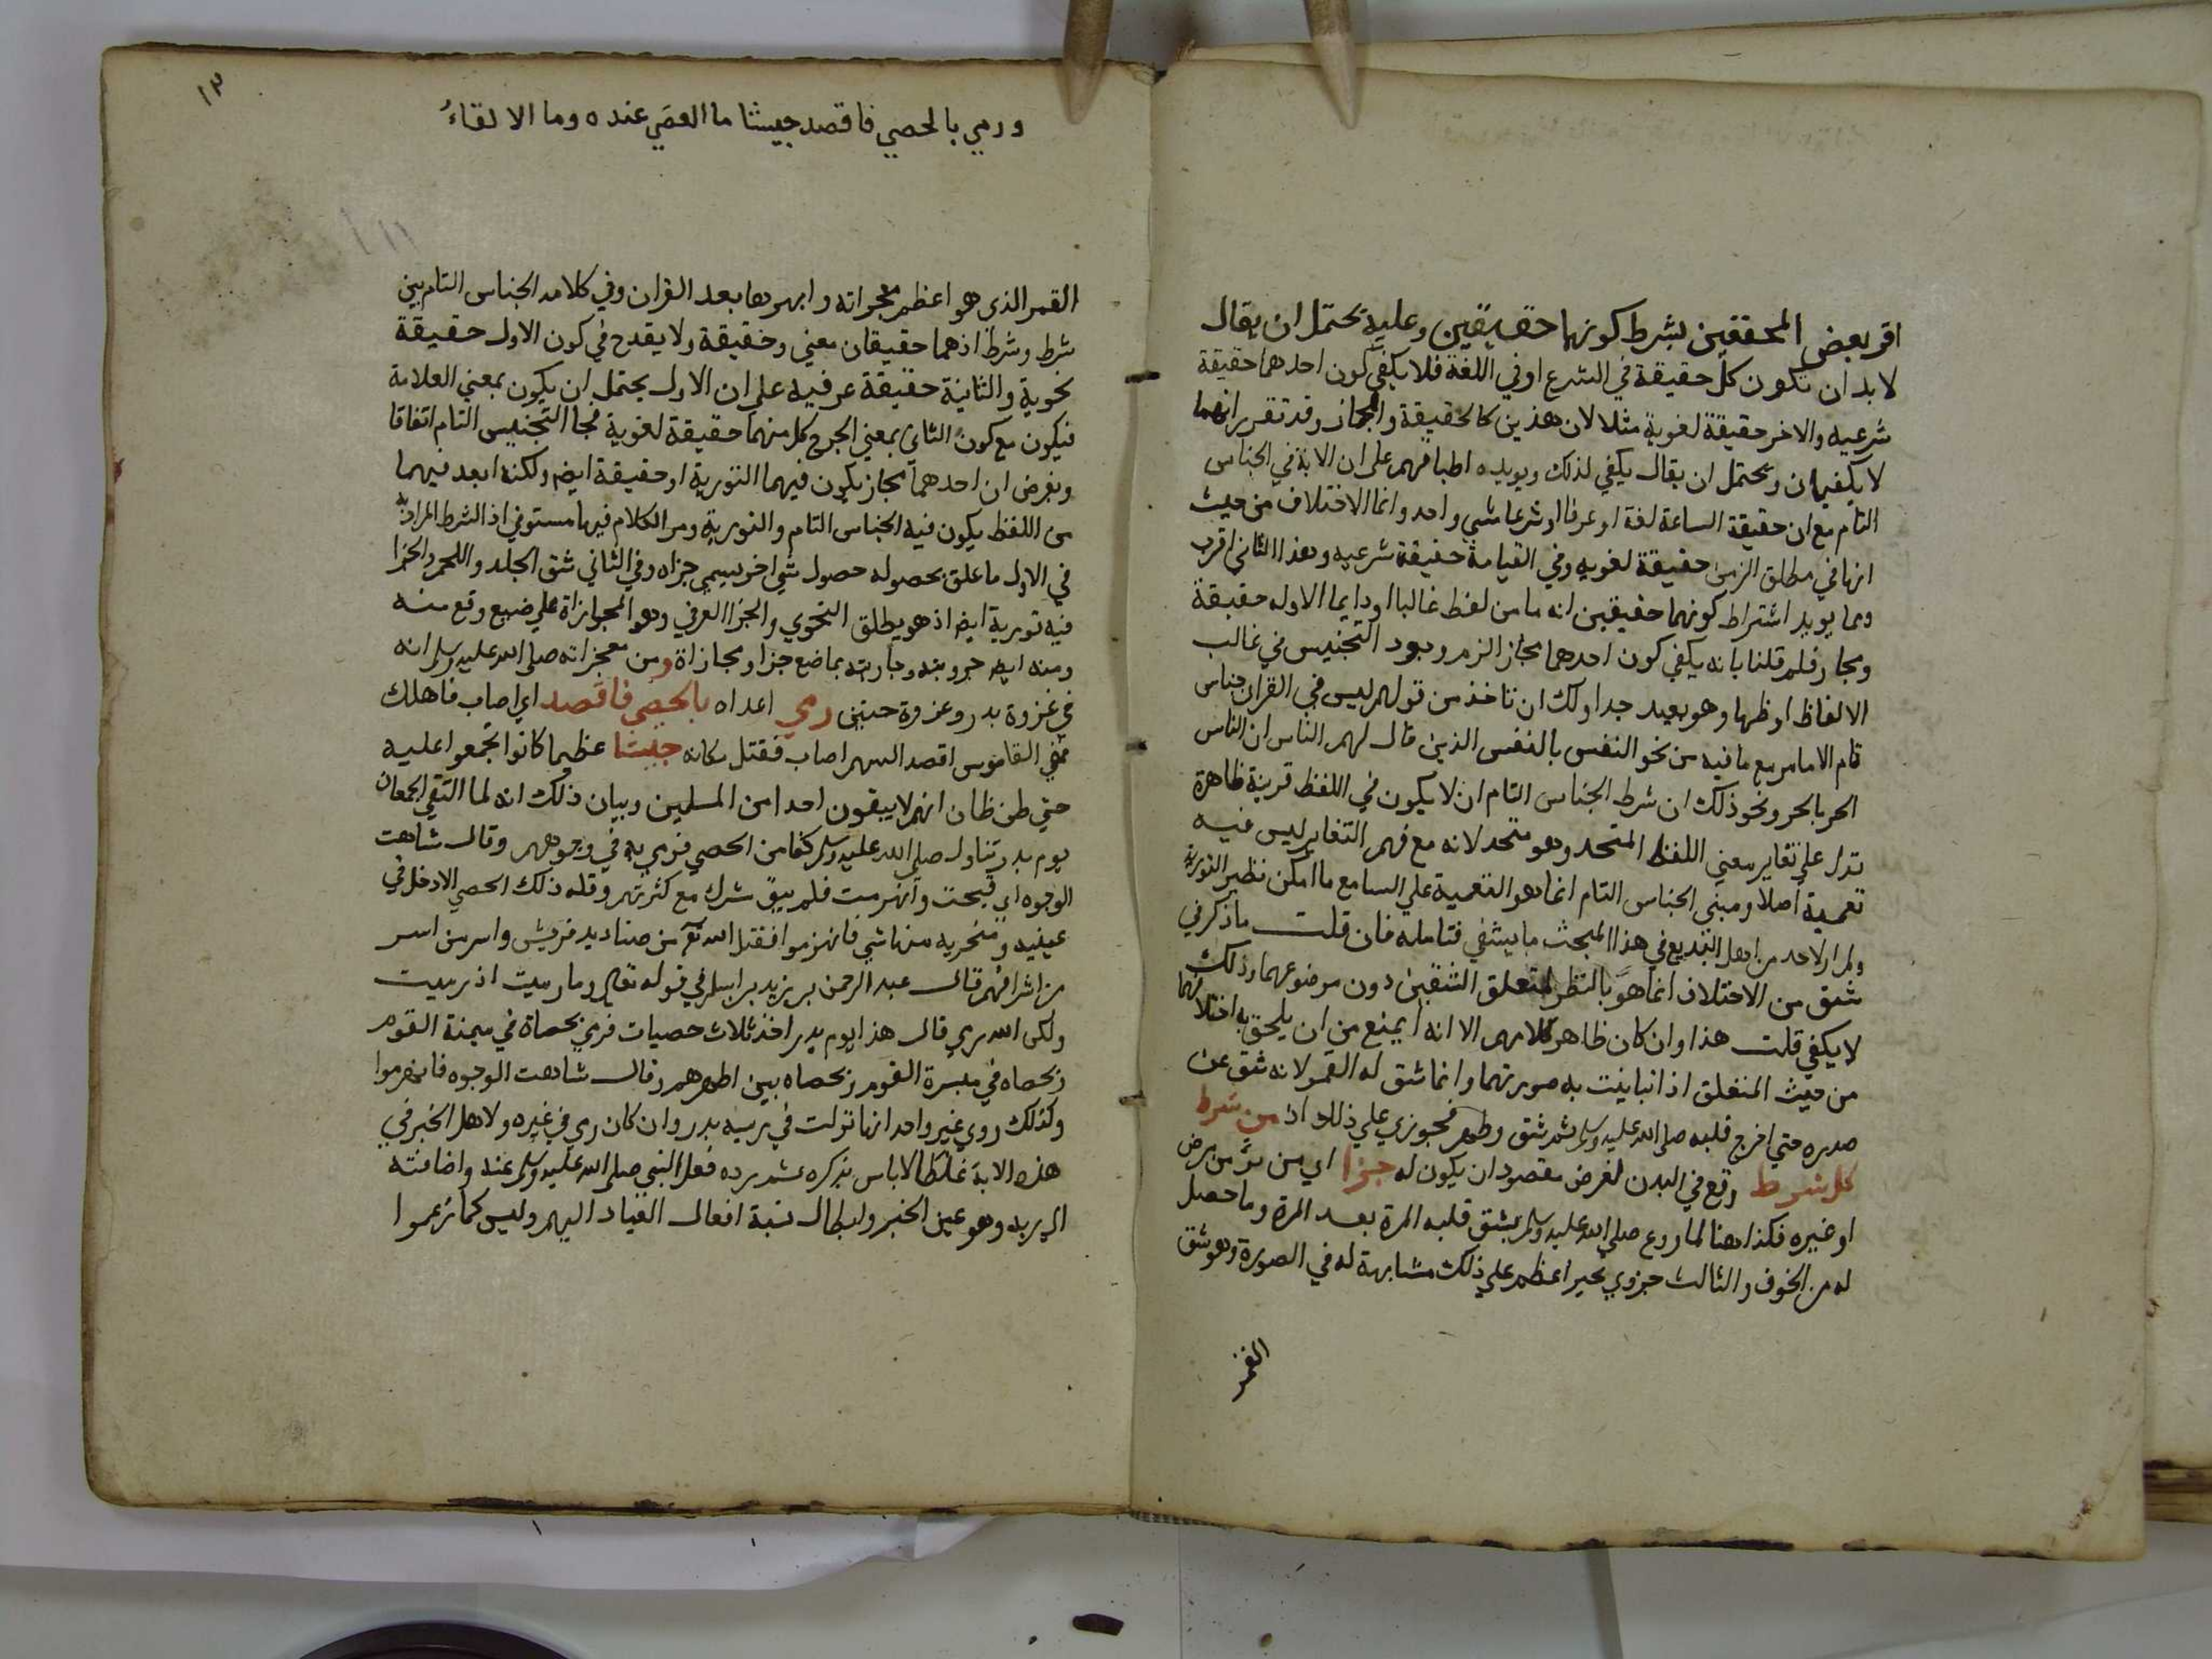 اقر بعض المحققين بشرط كونهما حقيقيين وعليه يحتمل ان يقال
لا بد ان تكون كل حقيقة في الشرع او في اللغة فلا يكفي كون احدهما حقيقة
شرعيه والاخر حقيقة لغوية مثلا لان هذين كالحقيقة والمجاز وقد تقرر انهما
لا يكفيان ويحتمل ان يقال يكفي لذلك ويويده اطباقهم على ان الاية في الجناس
التام مع ان حقيقة الساعة لغة او عرفا او شرعا شي واحد وانما الاختلاف من حيث
انها في مطلق الزمن حقيقة لغويه وفي القيامة حقيقة شرعيه وهذا الثاني اقرب
ومما يويد اشتراط كونهما حقيقين انه ما من لفظ غالبا او دايما الا وله حقيقة
ومجاز فلو قلنا بانه يكفي كون احدهما مجاز الزم وجود التجنيس في غالب
الالفاظ او ظهما وهو بعيد جدا ولك ان تاخذ من قولهم ليس في القران جناس
تام الا مامر مع ما فيه من نحو النفس بالنفس الذين قال لهم الناس ان الناس
الحر بالحر ونحو ذلك ان شرط الجناس التام ان لا يكون في اللفظ قرينة ظاهرة
تدل على تغاير معني اللفظ المتحد وهو متحد لانه مع فهم التغاير ليس فيه
تعمية اصلا ومبني الجناس التام انما هو التعمية علي السامع ما امكن نظير التورية
ولم ار لاحد من اهل البديع في هذا المبحث ما يشفي فتامله فان قلت ما ذكر في
شق من الاختلاف انما هو بالنظر لمتعلق الشقين دون موضوعهما وذلك
لا يكفي قلت هذا وان كان ظاهر كلامهم الا انه لا يمنع من ان يلحق به اختلافهما
من حيث المتعلق اذا تباينت به صورتهما وانما شق له القمر لانه شق عن
صدره حتي اخرج قلبه صلى الله عليه وسلم ثم شق وطهر فجوزي علي ذلك اذ من شرط
كل شرط وقع في البدن لغرض مقصود ان يكون له جزا اي من برء من مرض
او غيره فكذا هنا لما روع صلي الله عليه وسلم بشق قلبه المرة بعد المرة وما حصل
له من الخوف والثالث جوزي بخير اعظم علي ذلك مشابهة له في الصورة وهو شق
القمر
١٣
ورمي بالحصي فاقصد جيشا ما العصي عنده وما الالقاءُ
القمر الذي هو اعظم معجزاته وابهرها بعد القران وفي كلامه الجناس التام بين
شرط وشرط اذ هما حقيقان معني وحقيقة ولا يقدح في كون الاول حقيقة
نحوية والثانية حقيقة عرفيه على ان الاول يحتمل ان يكون بمعني العلامة
فيكون مع كون الثاني بمعني الجرح كل منهما حقيقة لغوية فجا التجنيس التام اتفاقا
وبفرض ان احدهما مجاز يكون فيهما التورية او حقيقة ايض ولكنه ابعد فيهما
من اللفظ يكون فيه الجناس التام والتورية ومر الكلام فيها مستوفي اذ الشرط المراد به
في الاول ما علق بحصوله حصول شي اخر يسمي جزاه وفي الثاني شق الجلد واللحم والجزا
فيه تورية ايض اذ هو يطلق النحوي والجزا العرفي وهو المجوازاة علي ضيع وقع منه
ومنه ايض جزيته وجازيته بما ضع جزا ومجازاة ومن معجزاته صلى الله عليه وسلم انه
في غزوة بدر وغزوة حنين رمي اعداه بالحصي فاقصد اي اصاب فاهلك
ففي القاموس اقصد السهم اصاب فقتل مكانه جيشا عظيما كانوا تجمعوا عليه
حتي ظن ظان انهم لا يبقون احدا من المسلمين وبيان ذلك انه لما التقي الجمعان
يوم بدر تناول صلى الله عليه وسلم كفا من الحصي فرمي به في وجوههم وقال شاهت
الوجوه اي قبحت وانهزمت فلم يبق شرك مع كثرتهم وقله ذلك الحصي الا دخل في
عينيه ومنخريه منها شي فانهزموا فقتل الله تع من صناديد قريش واسر من اسر
من اشرافهم قال عبد الرحمن بن يزيد بن اسلم في قوله تعالى وما رميت اذ رميت
ولكن الله رمي قال هذا يوم بدر اخذ ثلاث حصيات فرمي بحصاة في ميمنة القوم
وبحصاه في ميسرة القوم وبحصاه بين اظهرهم وقال شاهت الوجوه فانهزموا
وكذلك روي غير واحد انها نزلت في رميه بدر وان كان رمي في غيره ولاهل الخبر في
هذه الاية غلط لا باس بذكره ثم رده فعل النبي صلى الله عليه وسلم عنه واضافته
الي ربه وهو عين الخبر وابطال نسبة افعال العباد اليهم وليس كما زعموا